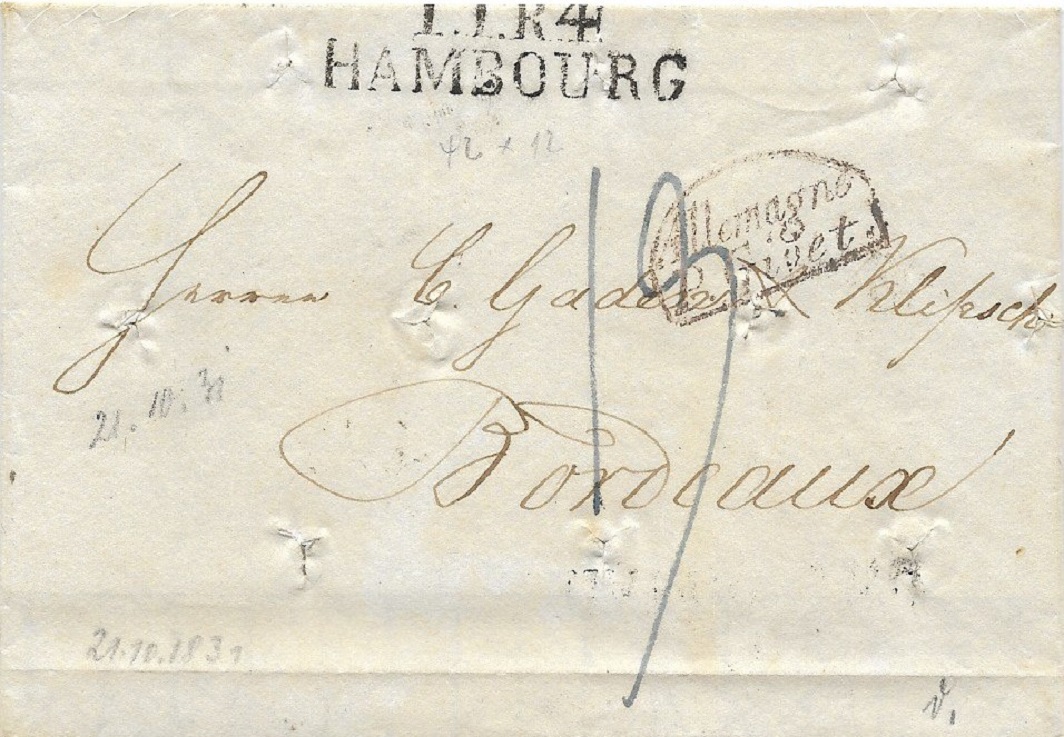 T.T.R.4
HAMBOURG
42 x 12
19
Allemagne
Givet.
Herren C. Gaden & Klipsch
21. 10. 31
Bordeaux
21.10.1831